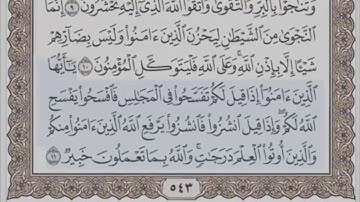 وَتَنَٰجَوۡاْ بِٱلۡبِرِّ وَٱلتَّقۡوَىٰۖ وَٱتَّقُواْ ٱللَّهَ ٱلَّذِيٓ إِلَيۡهِ تُحۡشَرُونَ ٩ إِنَّمَا
ٱلنَّجۡوَىٰ مِنَ ٱلشَّيۡطَٰنِ لِيَحۡزُنَ ٱلَّذِينَ ءَامَنُواْ وَلَيۡسَ بِضَآرِّهِمۡ
شَيۡـًٔا إِلَّا بِإِذۡنِ ٱللَّهِۚ وَعَلَى ٱللَّهِ فَلۡيَتَوَكَّلِ ٱلۡمُؤۡمِنُونَ ١٠ يَٰٓأَيُّهَا
ٱلَّذِينَ ءَامَنُوٓاْ إِذَا قِيلَ لَكُمۡ تَفَسَّحُواْ فِي ٱلۡمَجَٰلِسِ فَٱفۡسَحُواْ يَفۡسَحِ
ٱللَّهُ لَكُمۡۖ وَإِذَا قِيلَ ٱنشُزُواْ فَٱنشُزُواْ يَرۡفَعِ ٱللَّهُ ٱلَّذِينَ ءَامَنُواْ مِنكُمۡ
وَٱلَّذِينَ أُوتُواْ ٱلۡعِلۡمَ دَرَجَٰتٖۚ وَٱللَّهُ بِمَا تَعۡمَلُونَ خَبِيرٞ ١١
٥٤٣